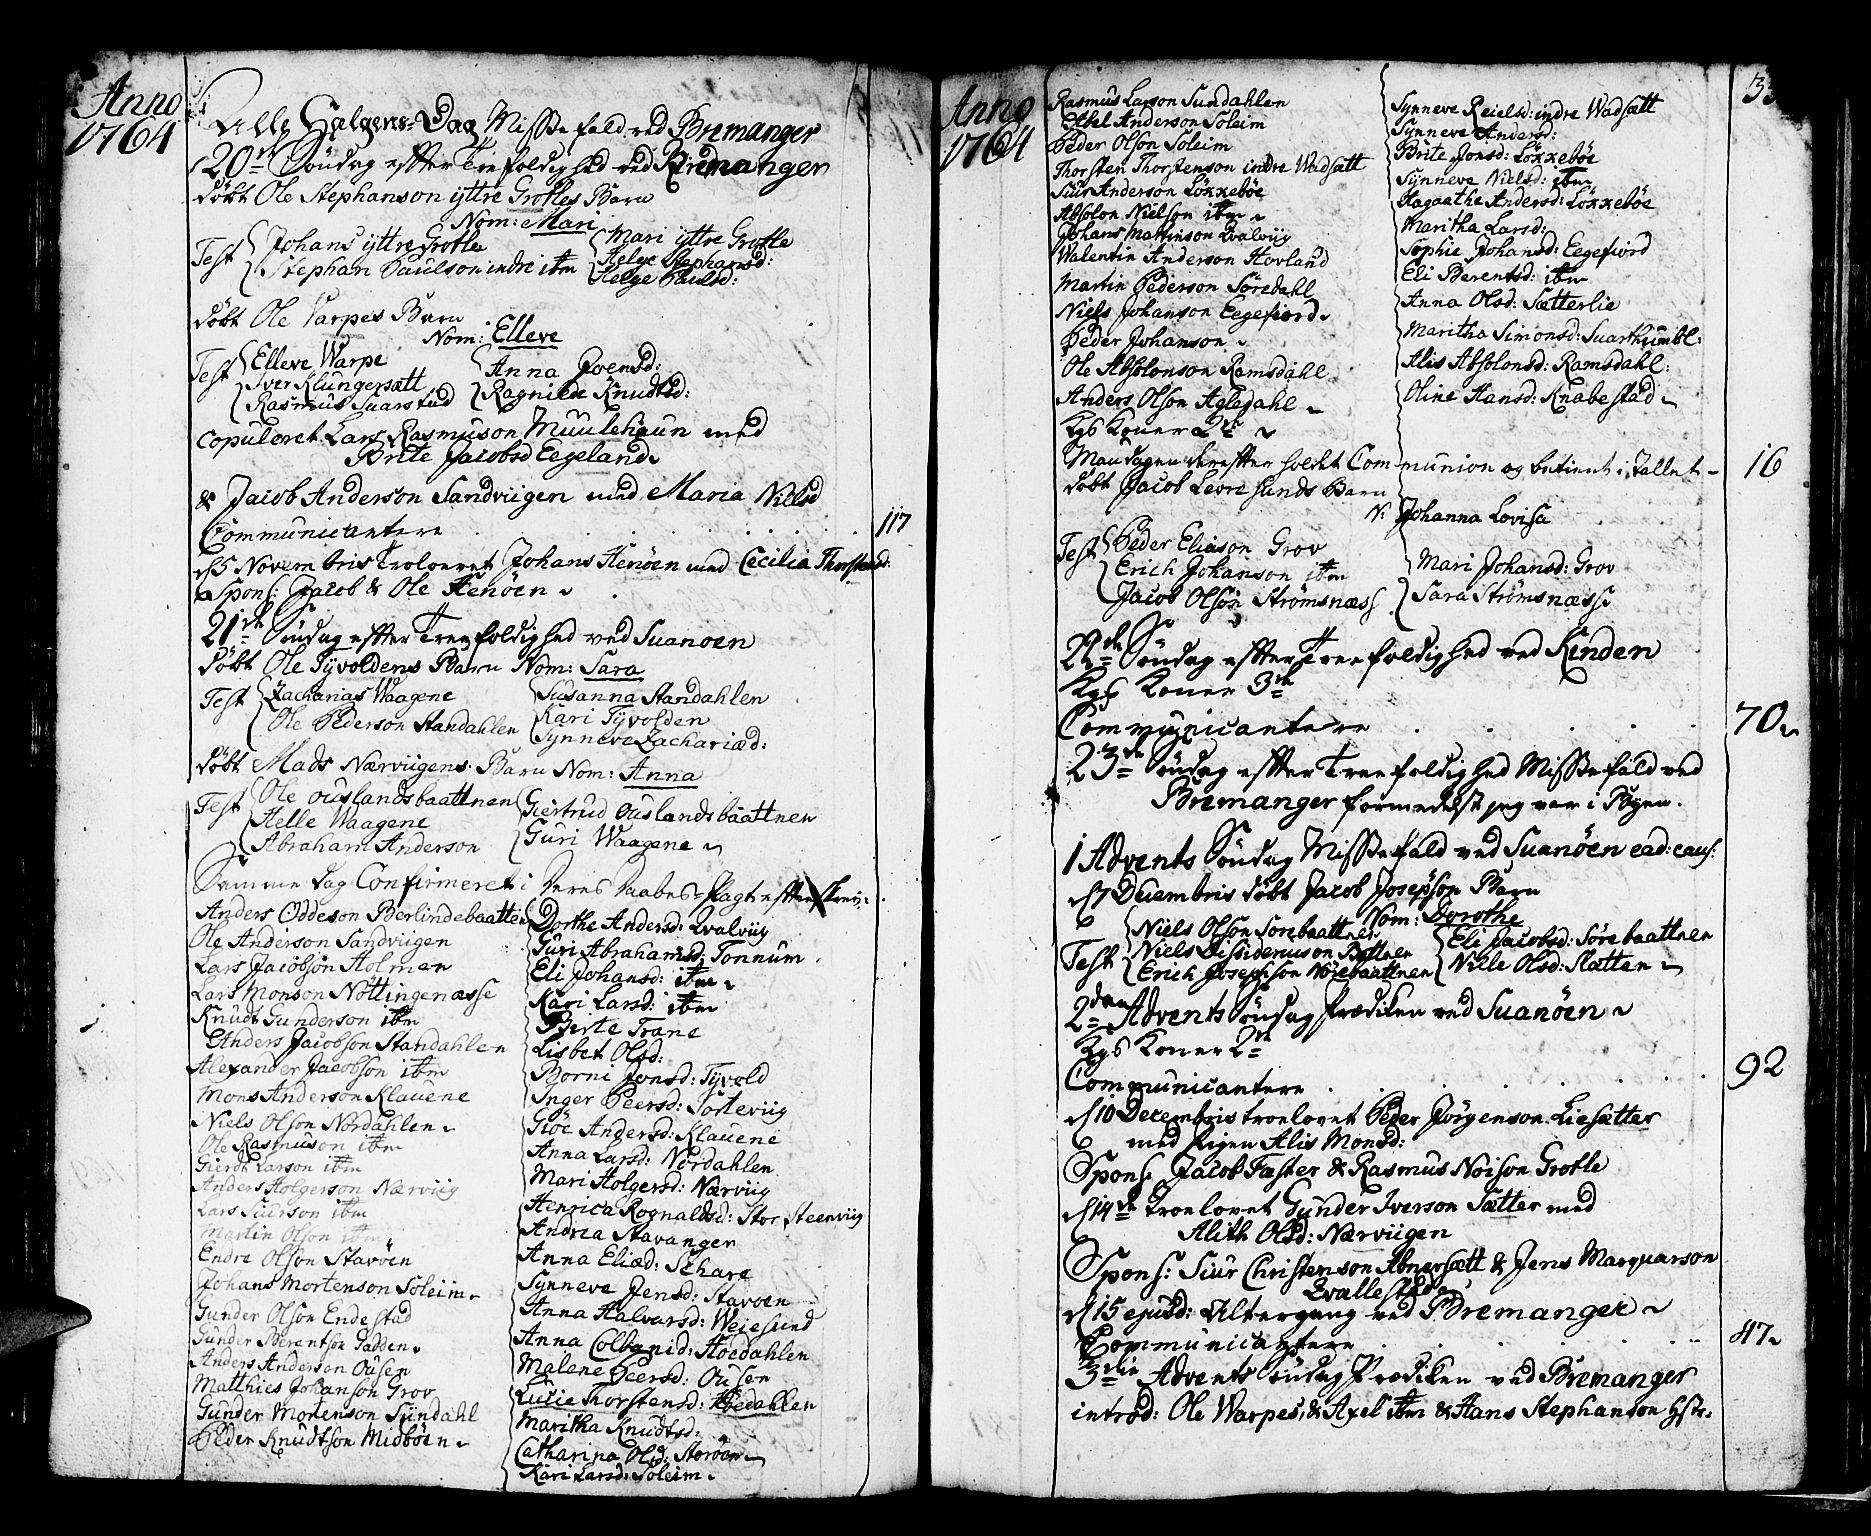 Anno
1764
Alle Helgens-Dag Missefald ved Bremanger
20de Søndag effter Trefoldighed ved Bremanger
døbt Ole Stephanson yttre Grotles Barn
Nom: Mari
Test Johans yttre Grotle
Stephan Paulson indre ibm
Mari yttre Grotle
Helge Stephansd:
Helge Paulsd:
døbt Ole Varpes Barn
Nom: Elleve
Test Elleve Warpe
Iver Klungersætt
Rasmus Suarstad
Anna Joensd:
Ragnilde Knudtsd:
copuleret Lars Rasmuson Muulehaun med
Brite Jacobsd Eegeland
& Jacob Anderson Sandviigen med Maria Nielsd
Communicantere 117
d 5 Novembris Troloveet Johans Henøen med Cecilia Thorstensd:
Spons: Jacob & Ole Henøen
21de Søndag effter Treefoldighed ved Suanoen
døbt Ole Tyvoldens Barn Nom: Sara
Test Zacharias Waagene
Ole Pederson Standahlen
Susanna Standahlen
Kari Tyvolden
Synneve Zachariæd:
døbt Mads Nærviigens Barn Nom: Anna
Test Ole ouslandsbaattnen
Helle Waagene
Abraham Anderson
Giertrud ouslandsbaattnen
Guri Waagene
Samme dag Confirmeret i deres Daabes-Pagt effter
Anders Oddeson Berlindebaatten
Ole Anderson Sandviigen
Lars Jacobson Holmen
Lars Monson Nottingenæsse
Knudt Gunderson ibm
Anders Jacobson Standahlen
Alexander Jacobson ibm
Mons Anderson Klauene
Niels Olson Nordahlen
Ole Rasmuson ibm
Gierdt Larson ibm
Anders Holgerson Nærviig
Lars Siurson ibm
Martin Olson ibm
Endre Olson Stavøen
Johans Mortenson Soleim
Gunder Olson Endestad
Gunder Berentson Padden
Anders Anderson Ousen
Matthies Johanson Grov
Gunder Mortenson Sundahl
Peder Knudtson Midbøen
Dorthe Andersd: Qvalviig
Guri Abrahamsd: Tonnum
Eli Johansd: ibm
Kari Larsd: ibm
Berte Trane
Lisbet Olsd:
Borni Jonsd: Tyvold
Inger Peersd: Torteviig
Gjøe Andersd: Klauene
Anna Larsd: Nordahlen
Mari Holgersd: Nærviig
Henrica Rognaldsd: Stor Steenviig
Andrea Stavanger
Anna Eliæd: Schare
Synneve Jensd: Stavoen
Anna Halvarsd: Weiesund
Anna Colbanid: Høedahlen
Malene Peersd: Ousen
Lucie Thorstensd: Hoedahlen
Maritha Knudtsd:
Catharina Olsd: Storøen
Kari Larsd: Soleim
Anno
1764
Rasmus Larson Sundahlen
Ethel Anderson Soleim
Peder Olson Soleim
Thorsten Thorstenson indre Wadsætt
Siur Anderson Løkkebøe
Absolon Nielson ibm
Johans Martinson Qvalviig
Valentin Anderson Hovland
Martin Pederson Søredahl
Niels Johanson Eegefiord
Peder Johanson
Ole Absolonson Ramsdahl
Anders Olson Agledahl
Kgs Koner 2de
Synneve Reielsd: indre Wadsætt
Synneve Andersd:
Brite Jonsd: Løkkebøe
Synneve Nielsd: ibm
Aagaathe Andersd: Løkkebøe
Maritha Larsd:
Sophie Johansd: Eegefiord
Eli Berentsd: ibm
Anna Olsd: Sætterlie
Maritha Simonsd: Suarthumbl:
Alis Absolonsd: Ramsdahl:
Oline Hansd: Knabestad
Mandagen dereffter holdet Communion og betient i Tallet 16
døbt Jacob Levresunds Barn
N: Johanna Lovisa
Test Peder Eliason Grov
Erich Johanson ibm
Jacob Olson Strømsnæss
Mari Johansd: Grov
Sara Strømsnæsse
22de Søndag effter Treefoldighed ved Kinden
Kgs Koner 3de
Communicantere 70
23de Søndag effter Treefoldighed Missefald ved
Bremanger formedelst jeg var i Byen.
1 Advents Søndag Missefald ved Suanöen ead: caus:
d 7 Decembris døbt Jacob Josephson Barn
Nom: Dorothe
Test Niels Olson Sorebaattnen
Niels Dissideriuson Bottnen
Erich Josephson Norebaattnen
Eli Jacobsd: Sørebaattnen
Nille Olsd: Slatten
2den Advents Søndag Prædiken ved Suanöen
Kgs Koner 2de
Communicantere 92
d 10 Decembris troelovet Peder Jørgenson Liesætter
med Pigen Alis Monsd:
Spons Jacob Fæster & Rasmus Noison Grotle
d 14de troelovet Gunder Iverson Sætter med
Alith Olsd: Nærviigen
Spons: Siur Christenson Abnersætt & Jens Marquarson
Qvallestad
d 15 ejusd: Altergang ved Bremanger
Communicantere 47
3die Advents Søndag Prædiken ved Bremanger
introd: Ole Warpes, & Axel ibm & Hans Stephanson Hstr: